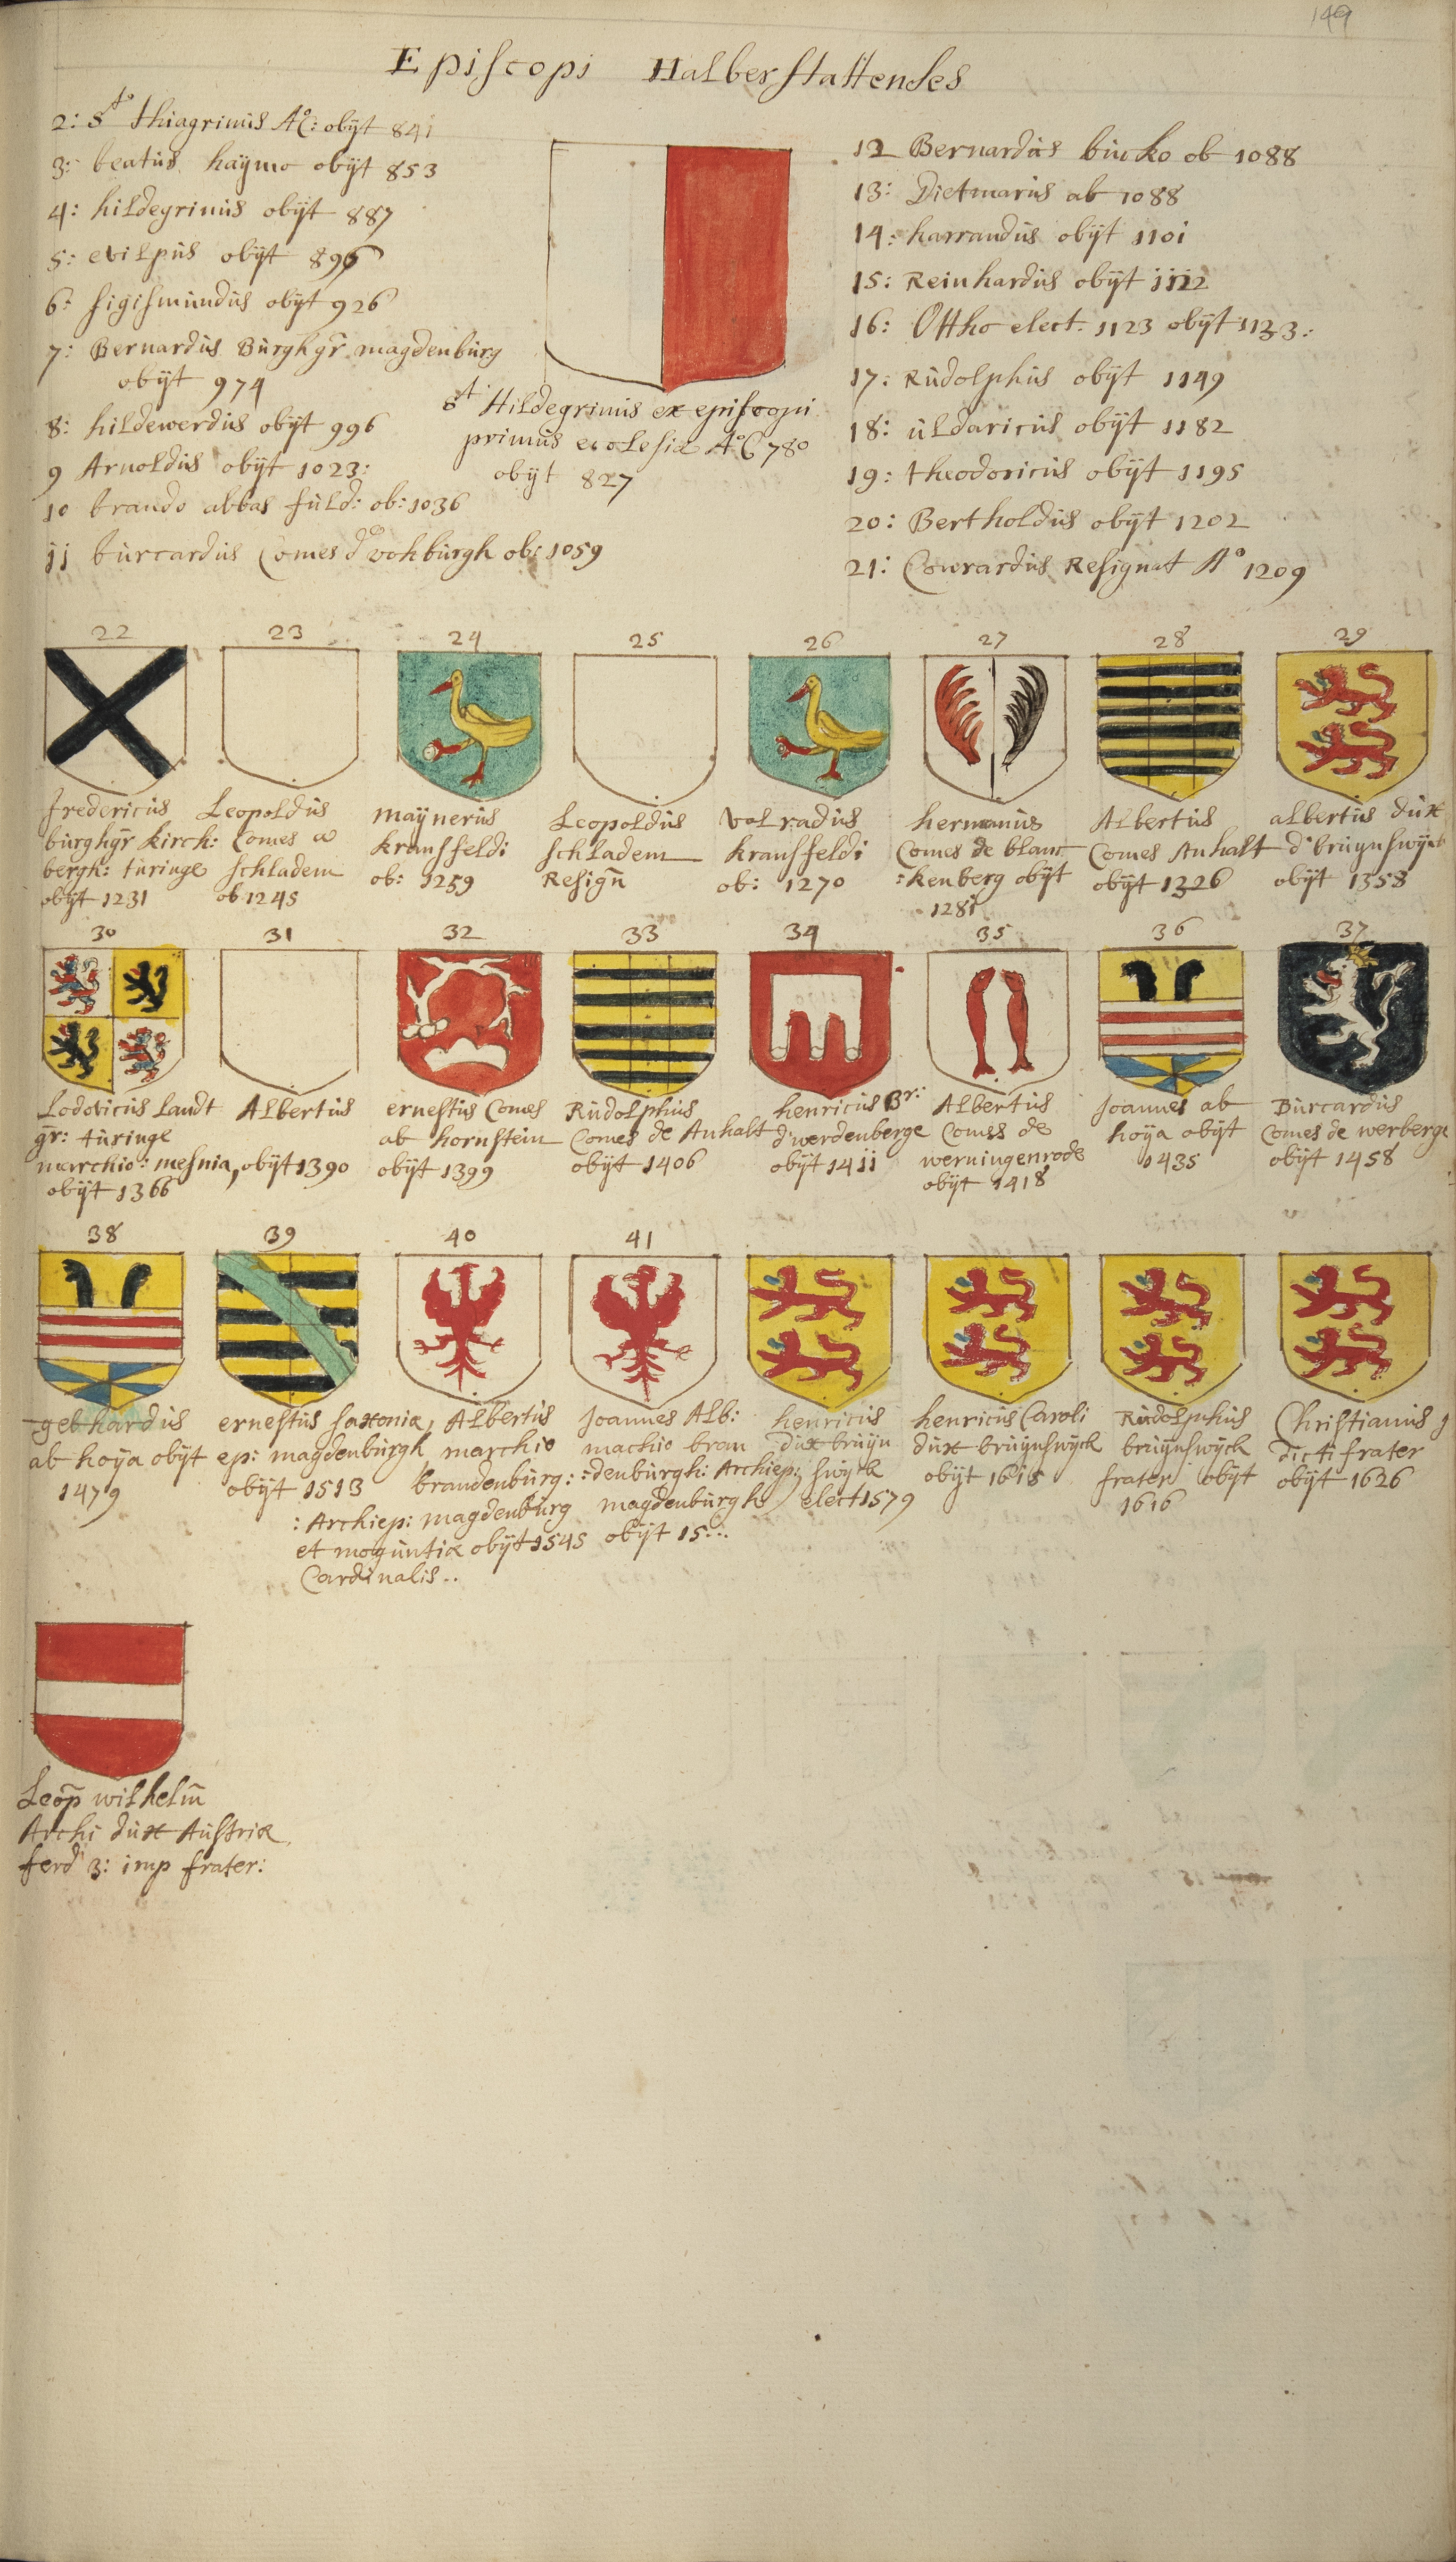 149
Episcopi Halberstattenses
2: Sto thiagrinus Ao: obijt 841
3: beatus haymo obijt 853
4: hildegrinus obijt 887
5: evilpus obijt 896
6: sigismundus obijt 926
7: Bernardus Burghgr magdenburg
obijt 974
8: hildewerdus obijt 996
9 Arnoldus obijt 1023:
10 brando abbas fuld: ob: 1036
11 burcardus Comes do vohburgh ob: 1059
St Hildegrinus ex episcopi
primus ecclesiæ Ao C 780
obijt 827
12 Bernardus buko ob 1088
13: Dietmarus ob 1088
14: harrandus obijt 1101
15: Reinhardus obijt 1122
16: Ottho elect. 1123 obijt 1133:
17: Rudolphus obijt 1149
18: uldaricus obijt 1182
19: theodoricus obijt 1195
20: Bertholdus obijt 1202
21: Conrardus Resignat Ao 1209
22 23 24 25 26 27 28 29
fredericus
burghgr kirch:
bergh: turinge
obijt 1231
Leopoldus
Comes
schladem
ob 1245
maynerus
kransfeldi
ob: 1259
Leopoldus
schladem
Resign
Volradus
kransfeldi
ob: 1270
hermanus
Comes de blanc
:kenberg obijt
1281
Albertus
Comes Anhalt
obijt 1326
albertus dux
d'bruynswijck
obijt 1358
30 31 32 33 34 35 36 37
Lodovicus landt
gr: turinge
marchio: mesnia,
obijt 1366
Albertus
obijt 1390
ernestus Comes
ab hornstein
obijt 1399
Rudolphus
Comes de Anhalt
obijt 1406
henricus Br:
d'werdenberge
obijt 1411
Albertus
Comes de
werningenrode
obijt 1418
Joannes ab
hoya obijt
1435
Burcardus
Comes de werberge
obijt 1458
38 39 40 41
gebhardus
ab hoya obijt
1479
ernestus saxoniæ,
ep: magdenburgh
obijt 1513
Albertus
marchio
brandenburg:
: Archiep: magdenburg
et moguntiæ obijt 1545
Cardinalis..
Joannes Alb:
machio bran
:denburgh: Archiep:
magdenburgh
obijt 15...
henricus
dux bruyn
swyck
elect 1579
henricus Caroli
dux bruynswyck
obijt 1615
Rudolphus
bruynswyck
frater obijt
1616
Christianus
dicti frater
obijt 1626
Leop wilhelm
Archi dux Austriæ
ferd 3: imp frater: